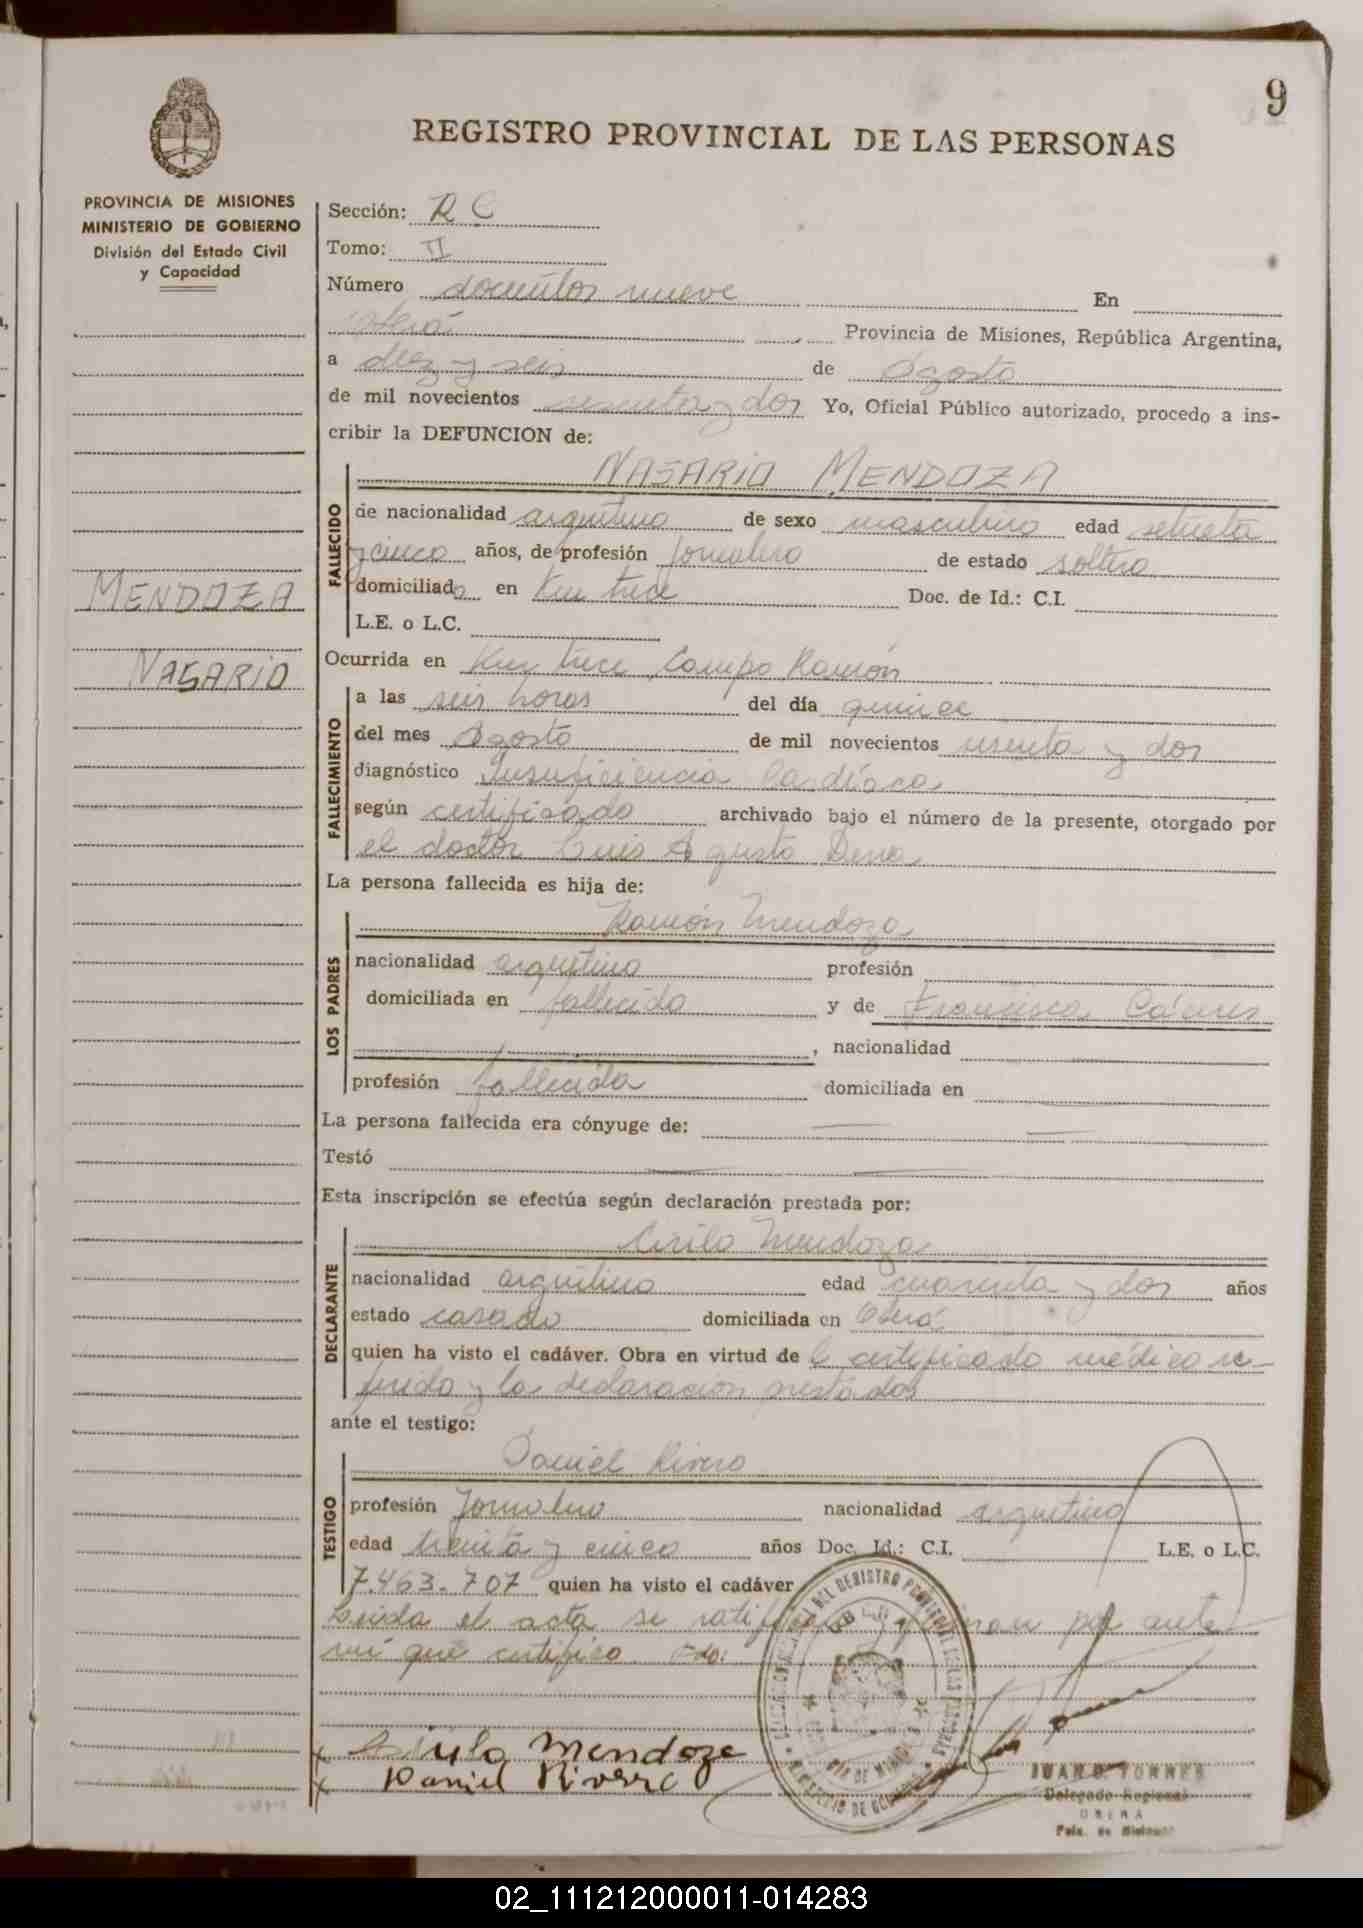 9
REGISTRO PROVINCIAL DE LAS PERSONAS
PROVINCIA DE MISIONES
MINISTERIO DE GOBIERNO
División del Estado Civil
y Capacidad
MENDOZA
NASARIO
Sección: R C
Tomo: II
Número doscientos nueve En
Oberá Provincia de Misiones, República Argentina,
a diez y seis de Agosto
de mil novecientos sesenta y dos Yo, Oficial Público autorizado, procedo a ins-
cribir la DEFUNCION de:
NASARIO MENDOZA
FALLECIDO
de nacionalidad argentino de sexo masculino edad setenta
y cinco años, de profesión jornalero de estado soltero
domiciliado en Km trece Doc. de Id.: C.I.
L.E. o L.C.
Ocurrida en Km trece, Campo Ramón
FALLECIMIENTO
a las seis horas del día quince
del mes Agosto de mil novecientos sesenta y dos
diagnóstico Insuficiencia Cardíaca
según certificado archivado bajo el número de la presente, otorgado por
el doctor Luis Agusto
La persona fallecida es hija de:
Ramón Mendoza
LOS PADRES
nacionalidad argentino profesión
domiciliada en fallecido y de Francisca Cáceres
, nacionalidad
profesión fallecida domiciliada en
La persona fallecida era cónyuge de:
Testó
Esta inscripción se efectúa según declaración prestada por:
Cirilo Mendoza
DECLARANTE
nacionalidad argentino edad cuarenta y dos años
estado casado domiciliada en Oberá
quien ha visto el cadáver. Obra en virtud de el certificado médico re-
ferido y la declaración prestados
ante el testigo:
Daniel Rivero
TESTIGO
profesión Jornalero nacionalidad argentino
edad treinta y cinco años Doc. Id.: C.I. L.E. o L.C.
7.463.707 quien ha visto el cadáver
Leida el acta se ratifican y firman por ante
mí que certifico
Cirilo Mendoza
Daniel Rivero
JUAN D. TORRES
Delegado Regional
OBERA
Pcia. de Misiones
02_111212000011-014283